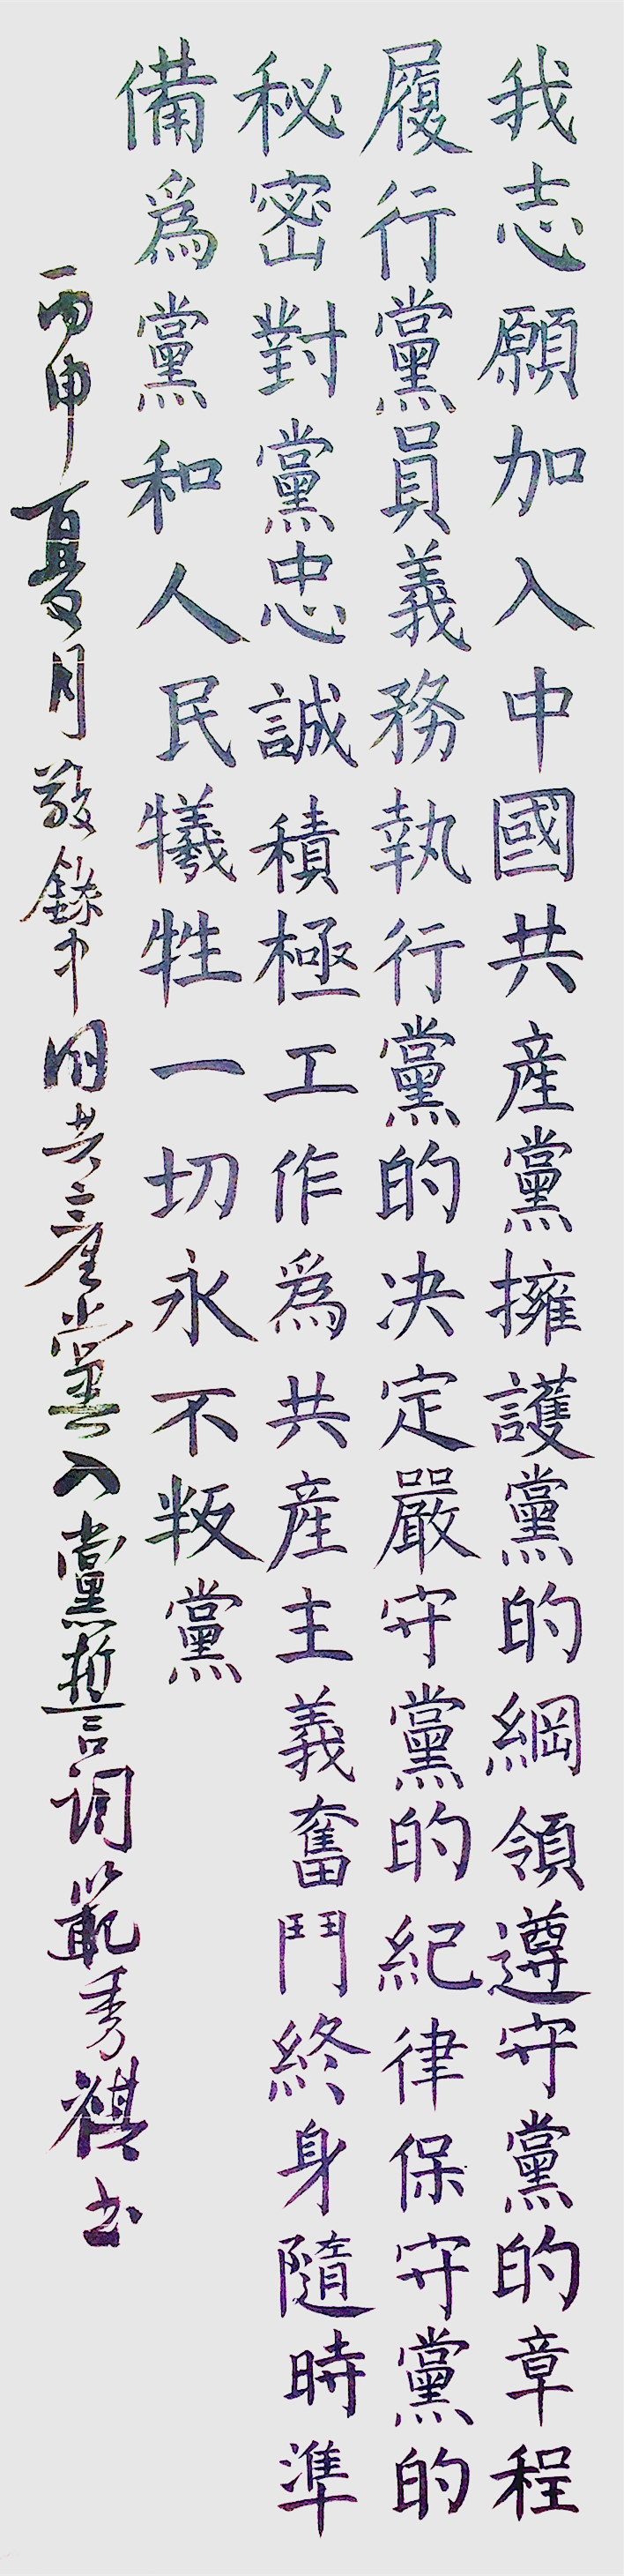 我志願加入中國共産黨擁護黨的綱領遵守黨的章程
履行黨員義務執行黨的决定嚴守黨的紀律保守黨的
秘密對黨忠誠積極工作為共産主義奮鬥終身隨時準
備為黨和人民犧牲一切永不叛黨
丙申夏月敬錄中国共產黨入黨誓詞範秀祺书